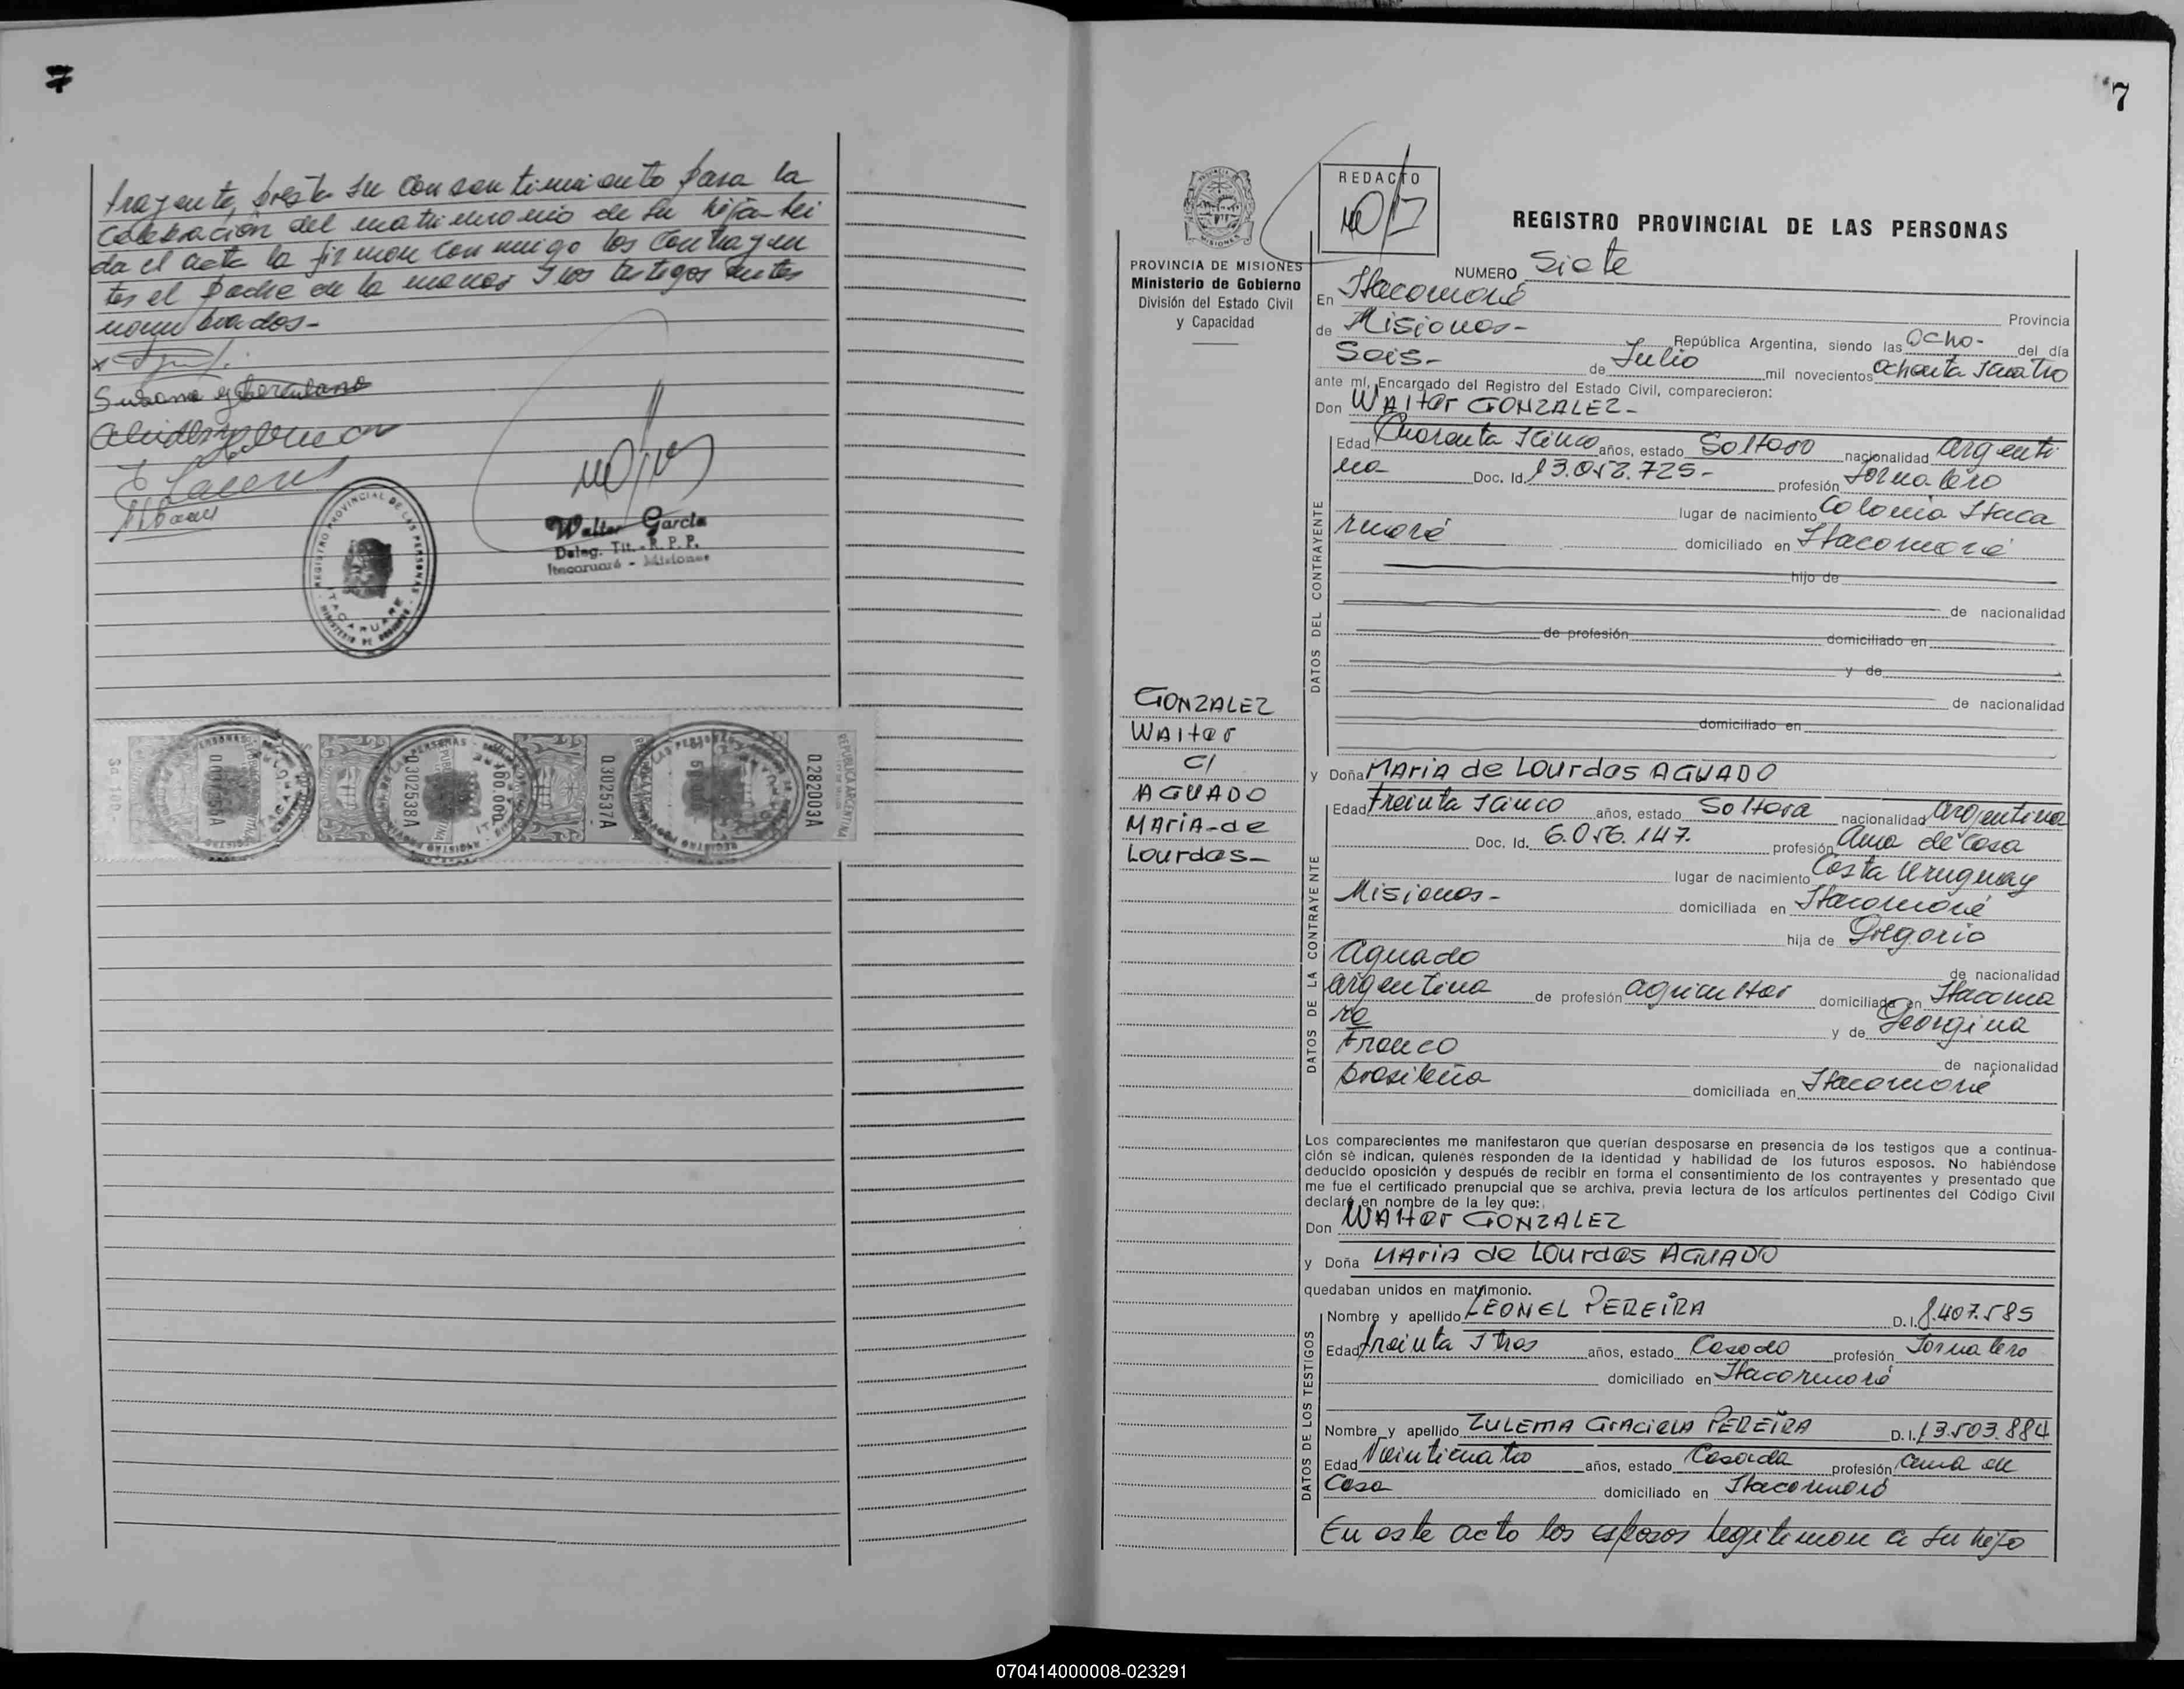 7
trayente, presta su consentimiento para la
celebración del matrimonio de su hija lei
da el acta la firman con migo los contrayen
tes el padre de la menor y los testigos antes
nombrados-
Susana
Walter Garcia
Deleg. Tit. - R. P. P.
Itacaruaré - Misiones
REGISTRO PROVINCIAL DE LAS PERSONAS
ITACARUARE
0.302538A
0.302537A
0.282003A
REPUBLICA ARGENTINA
7
REDACTO
REGISTRO PROVINCIAL DE LAS PERSONAS
PROVINCIA DE MISIONES
Ministerio de Gobierno
División del Estado Civil
y Capacidad
NUMERO Siete
En Itacaruaré
Provincia
de Misiones- República Argentina, siendo las Ocho- del día
Seis- de Julio mil novecientos ochenta y cuatro
ante mí, Encargado del Registro del Estado Civil, comparecieron:
Don WAlter GONZALEZ-
DATOS DEL CONTRAYENTE
Edad Cuarenta y cinco años, estado Soltero nacionalidad argenti
na Doc. Id. 13.052.725- profesión Jornalero
lugar de nacimiento Colonia Itaca
ruaré domiciliado en Itacaruaré
hijo de
de nacionalidad
de profesión domiciliado en
y de
de nacionalidad
domiciliado en
GONZALEZ
WAlter
C/
AGUADO
MAriA-de
Lourdes-
y Doña MAriA de Lourdes AGUADO
DATOS DE LA CONTRAYENTE
Edad treinta y cinco años, estado Soltera nacionalidad argentina
Doc. Id. 6.056.147. profesión Ama de Casa
lugar de nacimiento Costa Uruguay
Misiones- domiciliada en Itacaruaré
hija de Gregorio
Aguado de nacionalidad
argentina de profesión agricultor domiciliada en Itacarua
ré y de Georgina
Franco de nacionalidad
brasileña domiciliada en Itacaruaré
Los comparecientes me manifestaron que querían desposarse en presencia de los testigos que a continua-
ción se indican, quienes responden de la identidad y habilidad de los futuros esposos. No habiéndose
deducido oposición y después de recibir en forma el consentimiento de los contrayentes y presentado que
me fue el certificado prenupcial que se archiva, previa lectura de los artículos pertinentes del Código Civil
declaré en nombre de la ley que:
Don WAlter GONZALEZ
y Doña MAriA de Lourdes AGUADO
quedaban unidos en matrimonio.
DATOS DE LOS TESTIGOS
Nombre y apellido LEONEL PEREIRA D. I. 8.407.585
Edad treinta y tres años, estado Casado profesión Jornalero
domiciliado en Itacaruaré
Nombre y apellido ZULEMA GrAcielA PEREIRA D. I. 13.503.884
Edad Veinticuatro años, estado Casada profesión ama de
Casa domiciliado en Itacaruaré
En este acto los esposos legitiman a su hijo
070414000008-023291